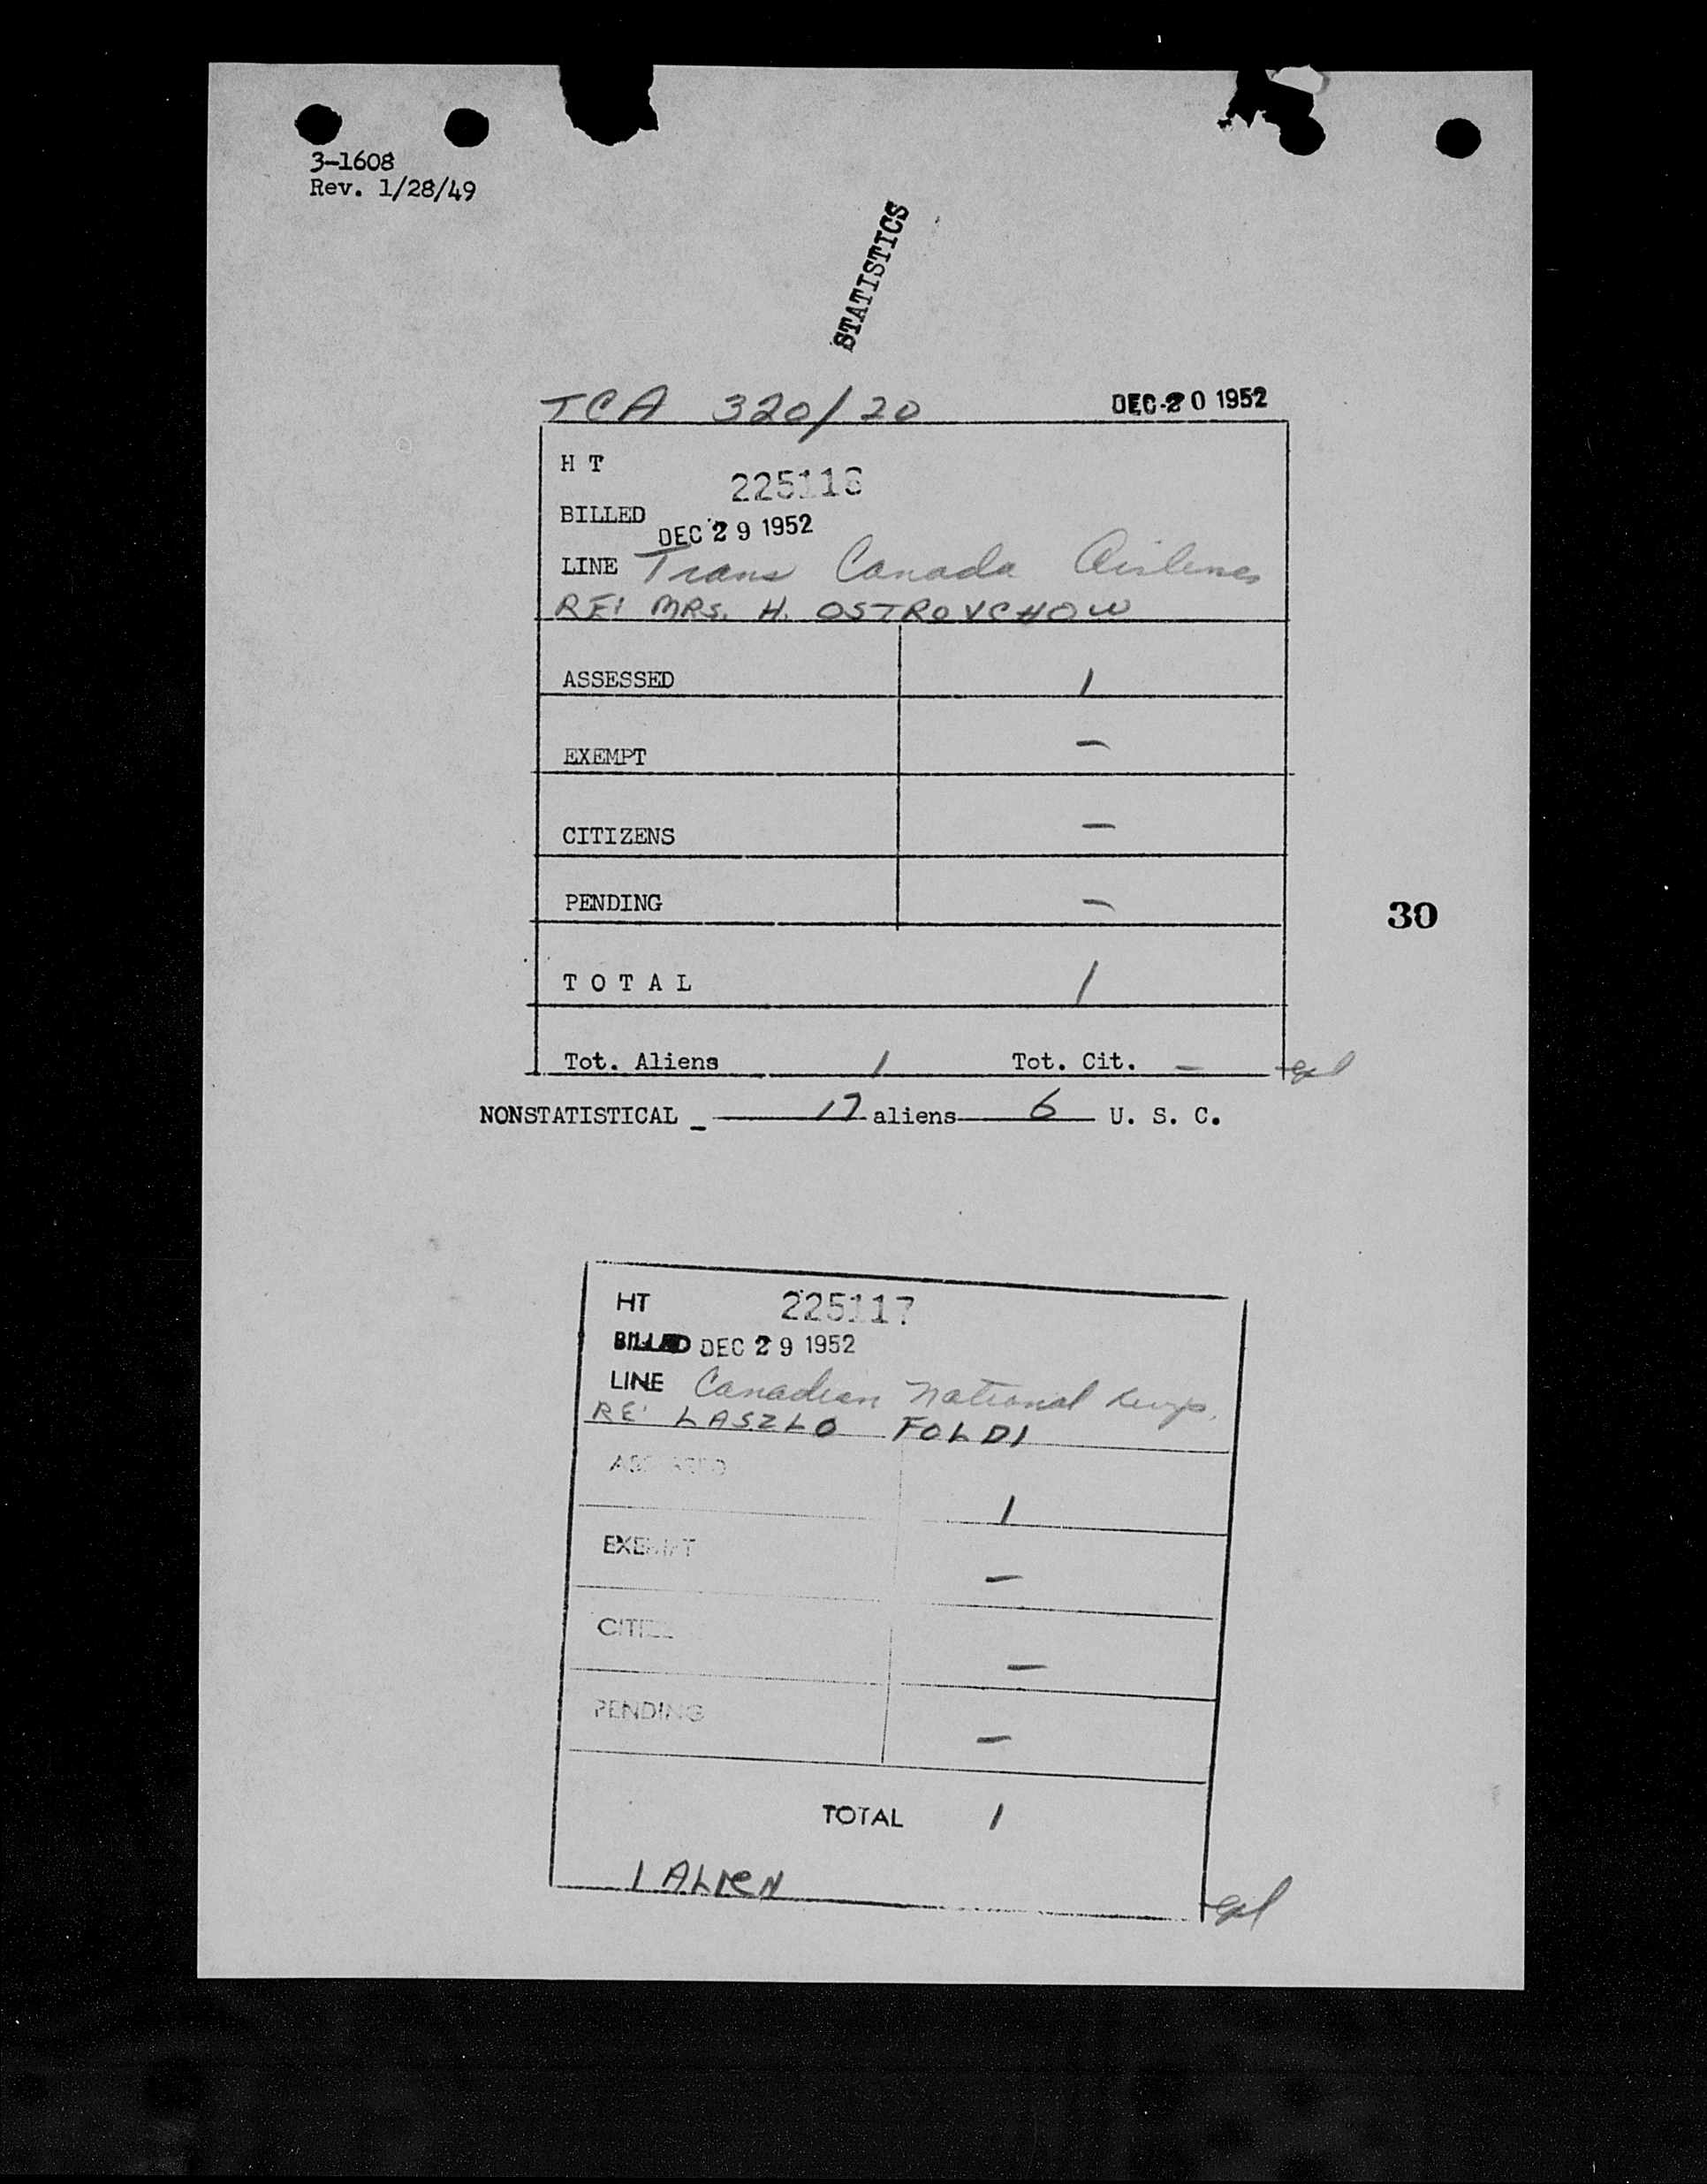 3-1608
Rev. 1/28/49
STATISTICS
TCA 320/20 DEC 20 1952
H T 225118
BILLED DEC 29 1952
LINE Trans Canada Airlines
RE: MRS. H. OSTROVCHOW
ASSESSED 1
EXEMPT –
CITIZENS –
PENDING –
30
T O T A L 1
Tot. Aliens 1 Tot. Cit. –
NONSTATISTICAL _ 17 aliens 6 U. S. C.
HT 225117
BILLED DEC 29 1952
LINE Canadian National
RE: LASZLO FOLDI
ASSESSED 1
EXEMPT –
CITIZ –
PENDING –
TOTAL 1
1 ALIEN